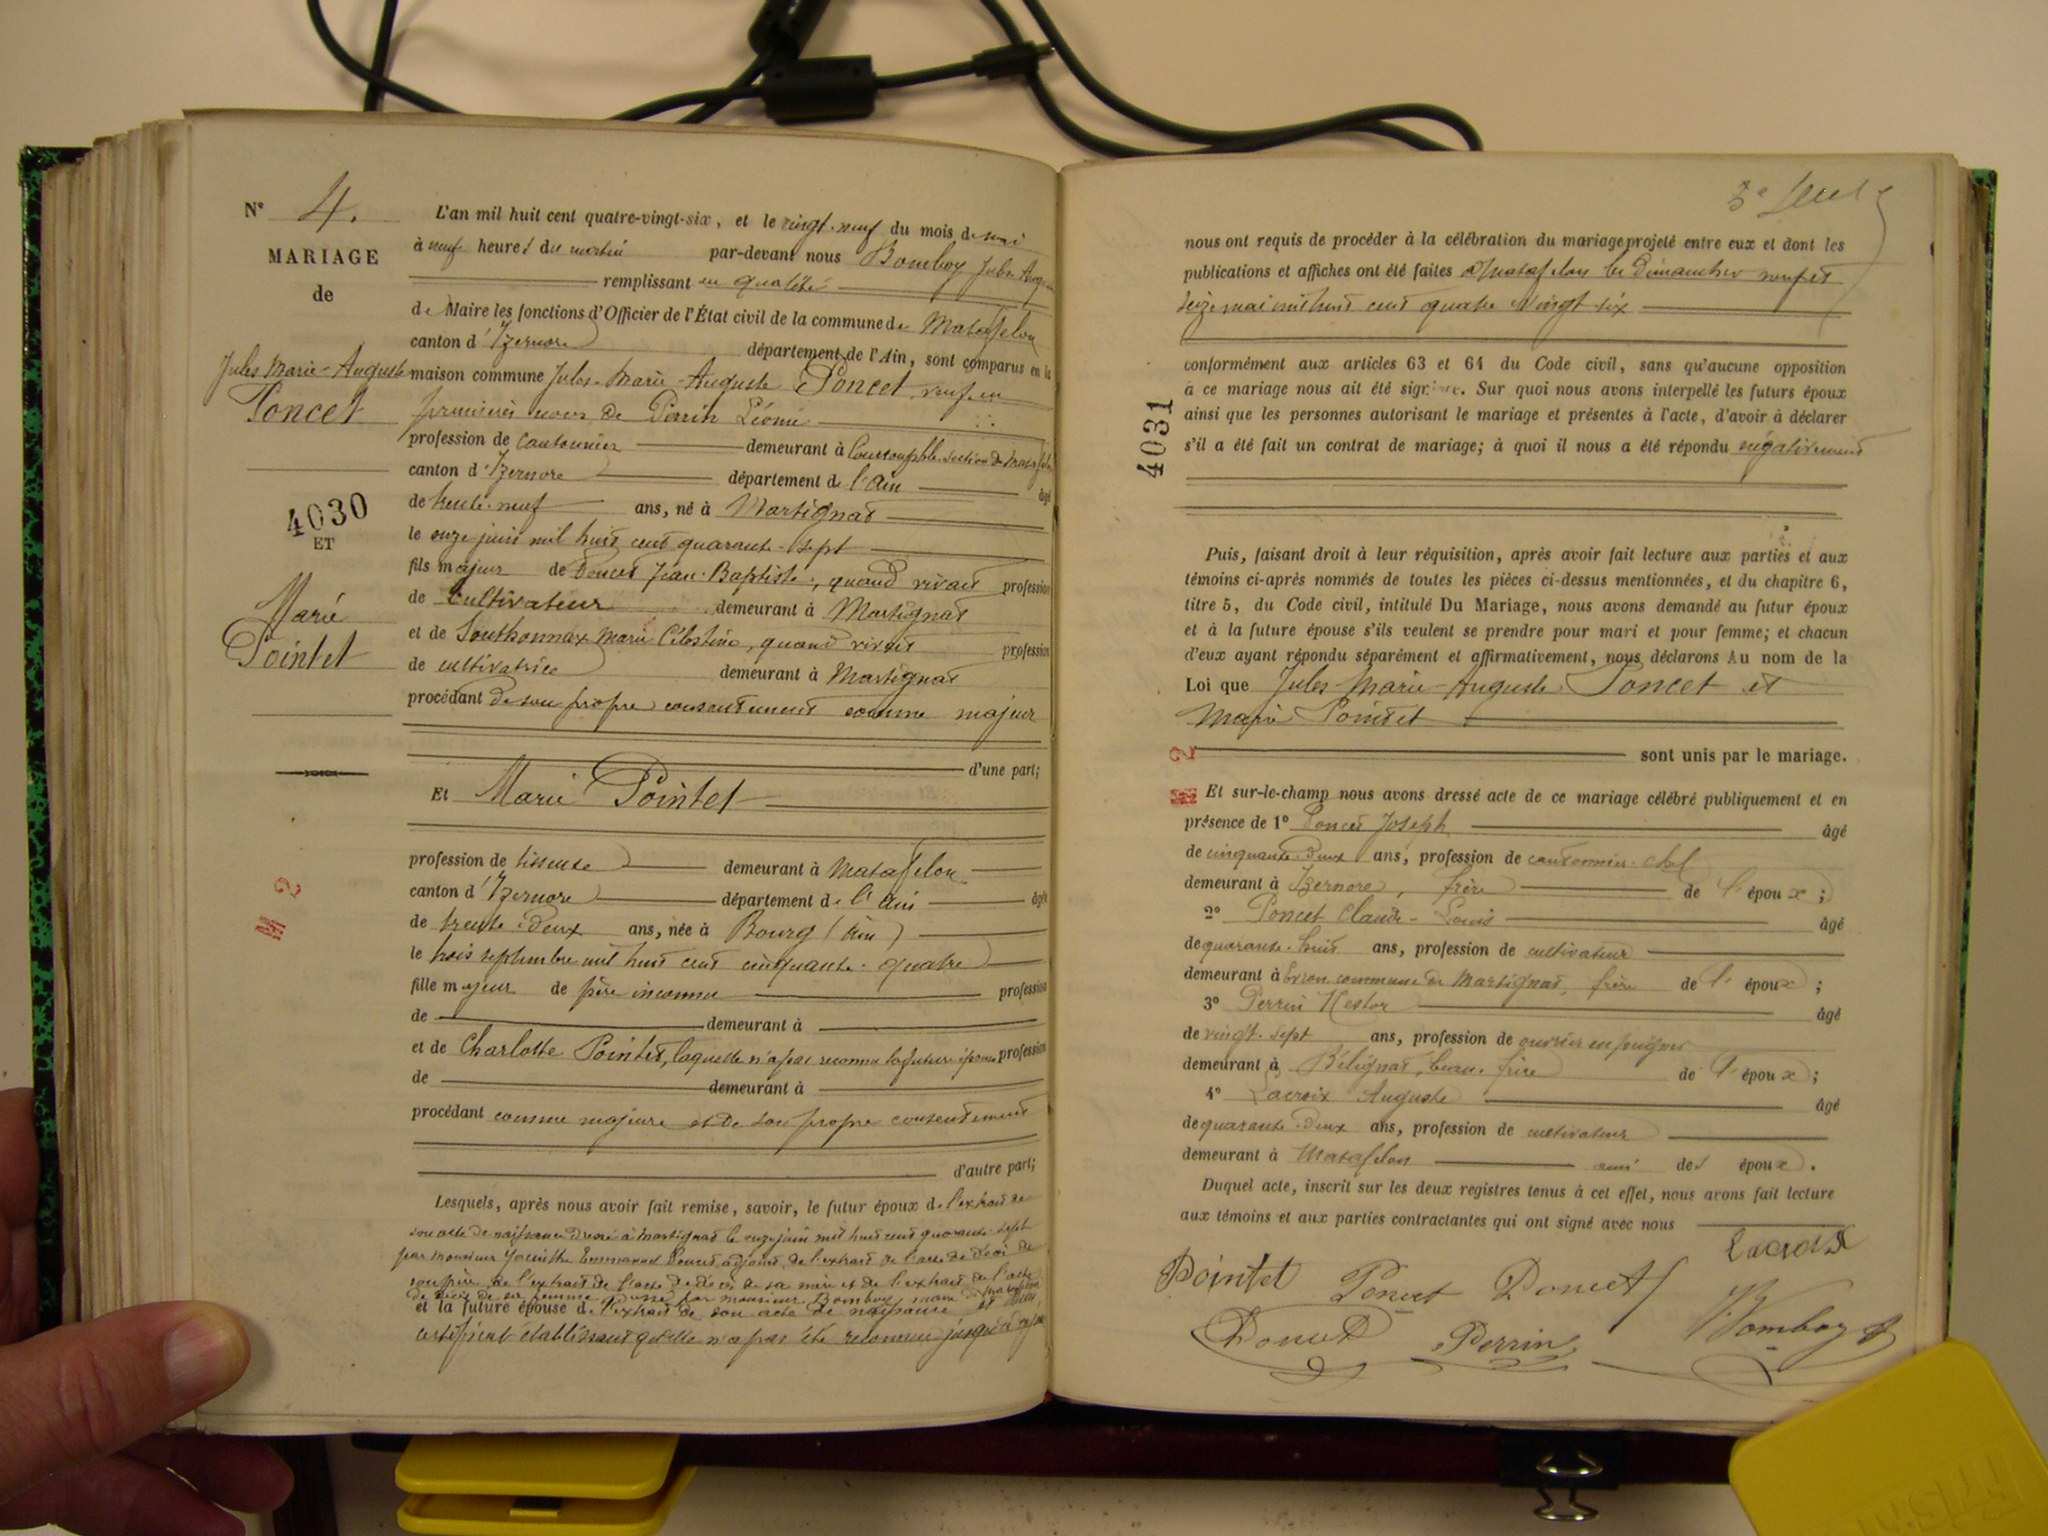 N° 4.
MARIAGE
de
Jules Marie-Auguste
Poncet
4030
ET
Marie
Pointet
L'an mil huit cent quatre-vingt-six, et le vingt-neuf du mois de mai
à neuf heures du matin par-devant nous Bomboy Jules
remplissant en qualité
de Maire les fonctions d'Officier de l'État civil de la commune de Matafelon
canton d'Izernore département de l'Ain, sont comparus en la
maison commune Jules-Marie-Auguste Poncet veuf en
premières noces de Perrin Léonie
profession de cantonnier demeurant à section de
canton d'Izernore département de l'Ain âgé
de trente-neuf ans, né à Martignat
le onze juin mil huit cent quarante-sept
fils majeur de Poncet Jean-Baptiste, quand vivait profession
de cultivateur demeurant à Martignat
et de Southonnax Marie Célestine, quand vivait profession
de cultivatrice demeurant à Martignat
procédant de son propre consentement comme majeur
d'une part;
Et Marie Pointet
profession de tisseuse demeurant à Matafelon
canton d'Izernore département de l'Ain âgée
de trente-deux ans, née à Bourg (Ain)
le trois septembre mil huit cent cinquante-quatre
fille majeur de père inconnu profession
de demeurant à
et de Charlotte Pointet, laquelle n'a pas reconnu la future épouse profession
de demeurant à
procédant comme majeure et de son propre consentement
d'autre part;
Lesquels, après nous avoir fait remise, savoir, le futur époux de l'extrait de
son acte de naissance dressé à Martignat le onze juin mil huit cent quarante-sept
par monsieur Jacinthe Emmanuel Poncet adjoint, de l'extrait de l'acte de décès de
son père de l'extrait de l'acte de décès de sa mère et de l'extrait de l'acte
de décès de sa femme dressé par monsieur Bomboy maire de Matafelon
et la future épouse de l'extrait de son acte de naissance et d'un
certificat établissant qu'elle n'a pas été reconnue jusqu'à ce jour
2
3e
nous ont requis de procéder à la célébration du mariage projeté entre eux et dont les
publications et affiches ont été faites à Matafelon les dimanches neuf et
seize mai mil huit cent quatre vingt six
conformément aux articles 63 et 64 du Code civil, sans qu'aucune opposition
à ce mariage nous ait été signifiée. Sur quoi nous avons interpellé les futurs époux
ainsi que les personnes autorisant le mariage et présentes à l'acte, d'avoir à déclarer
s'il a été fait un contrat de mariage; à quoi il nous a été répondu négativement
4031
Puis, faisant droit à leur réquisition, après avoir fait lecture aux parties et aux
témoins ci-après nommés de toutes les pièces ci-dessus mentionnées, et du chapitre 6,
titre 5, du Code civil, intitulé Du Mariage, nous avons demandé au futur époux
et à la future épouse s'ils veulent se prendre pour mari et pour femme; et chacun
d'eux ayant répondu séparément et affirmativement, nous déclarons Au nom de la
Loi que Jules-Marie-Auguste Poncet et
Marie Pointet
sont unis par le mariage.
2
Et sur-le-champ nous avons dressé acte de ce mariage célébré publiquement et en
présence de 1° Poncet Joseph âgé
de cinquante-deux ans, profession de cantonnier-chef
demeurant à Izernore, frère de l'époux;
2° Poncet Claude-Louis âgé
de quarante-huit ans, profession de cultivateur
demeurant à commune de Martignat, frère de l'époux;
3° Perrin Nestor âgé
de vingt-sept ans, profession de ouvrier en peignes
demeurant à Bélignat, beau-frère de l'époux;
4° Lacroix Auguste âgé
de quarante-deux ans, profession de cultivateur
demeurant à Matafelon ami des époux.
Duquel acte, inscrit sur les deux registres tenus à cet effet, nous avons fait lecture
aux témoins et aux parties contractantes qui ont signé avec nous
Lacroix
Pointet Poncet Poncet
Poncet Perrin Bomboy